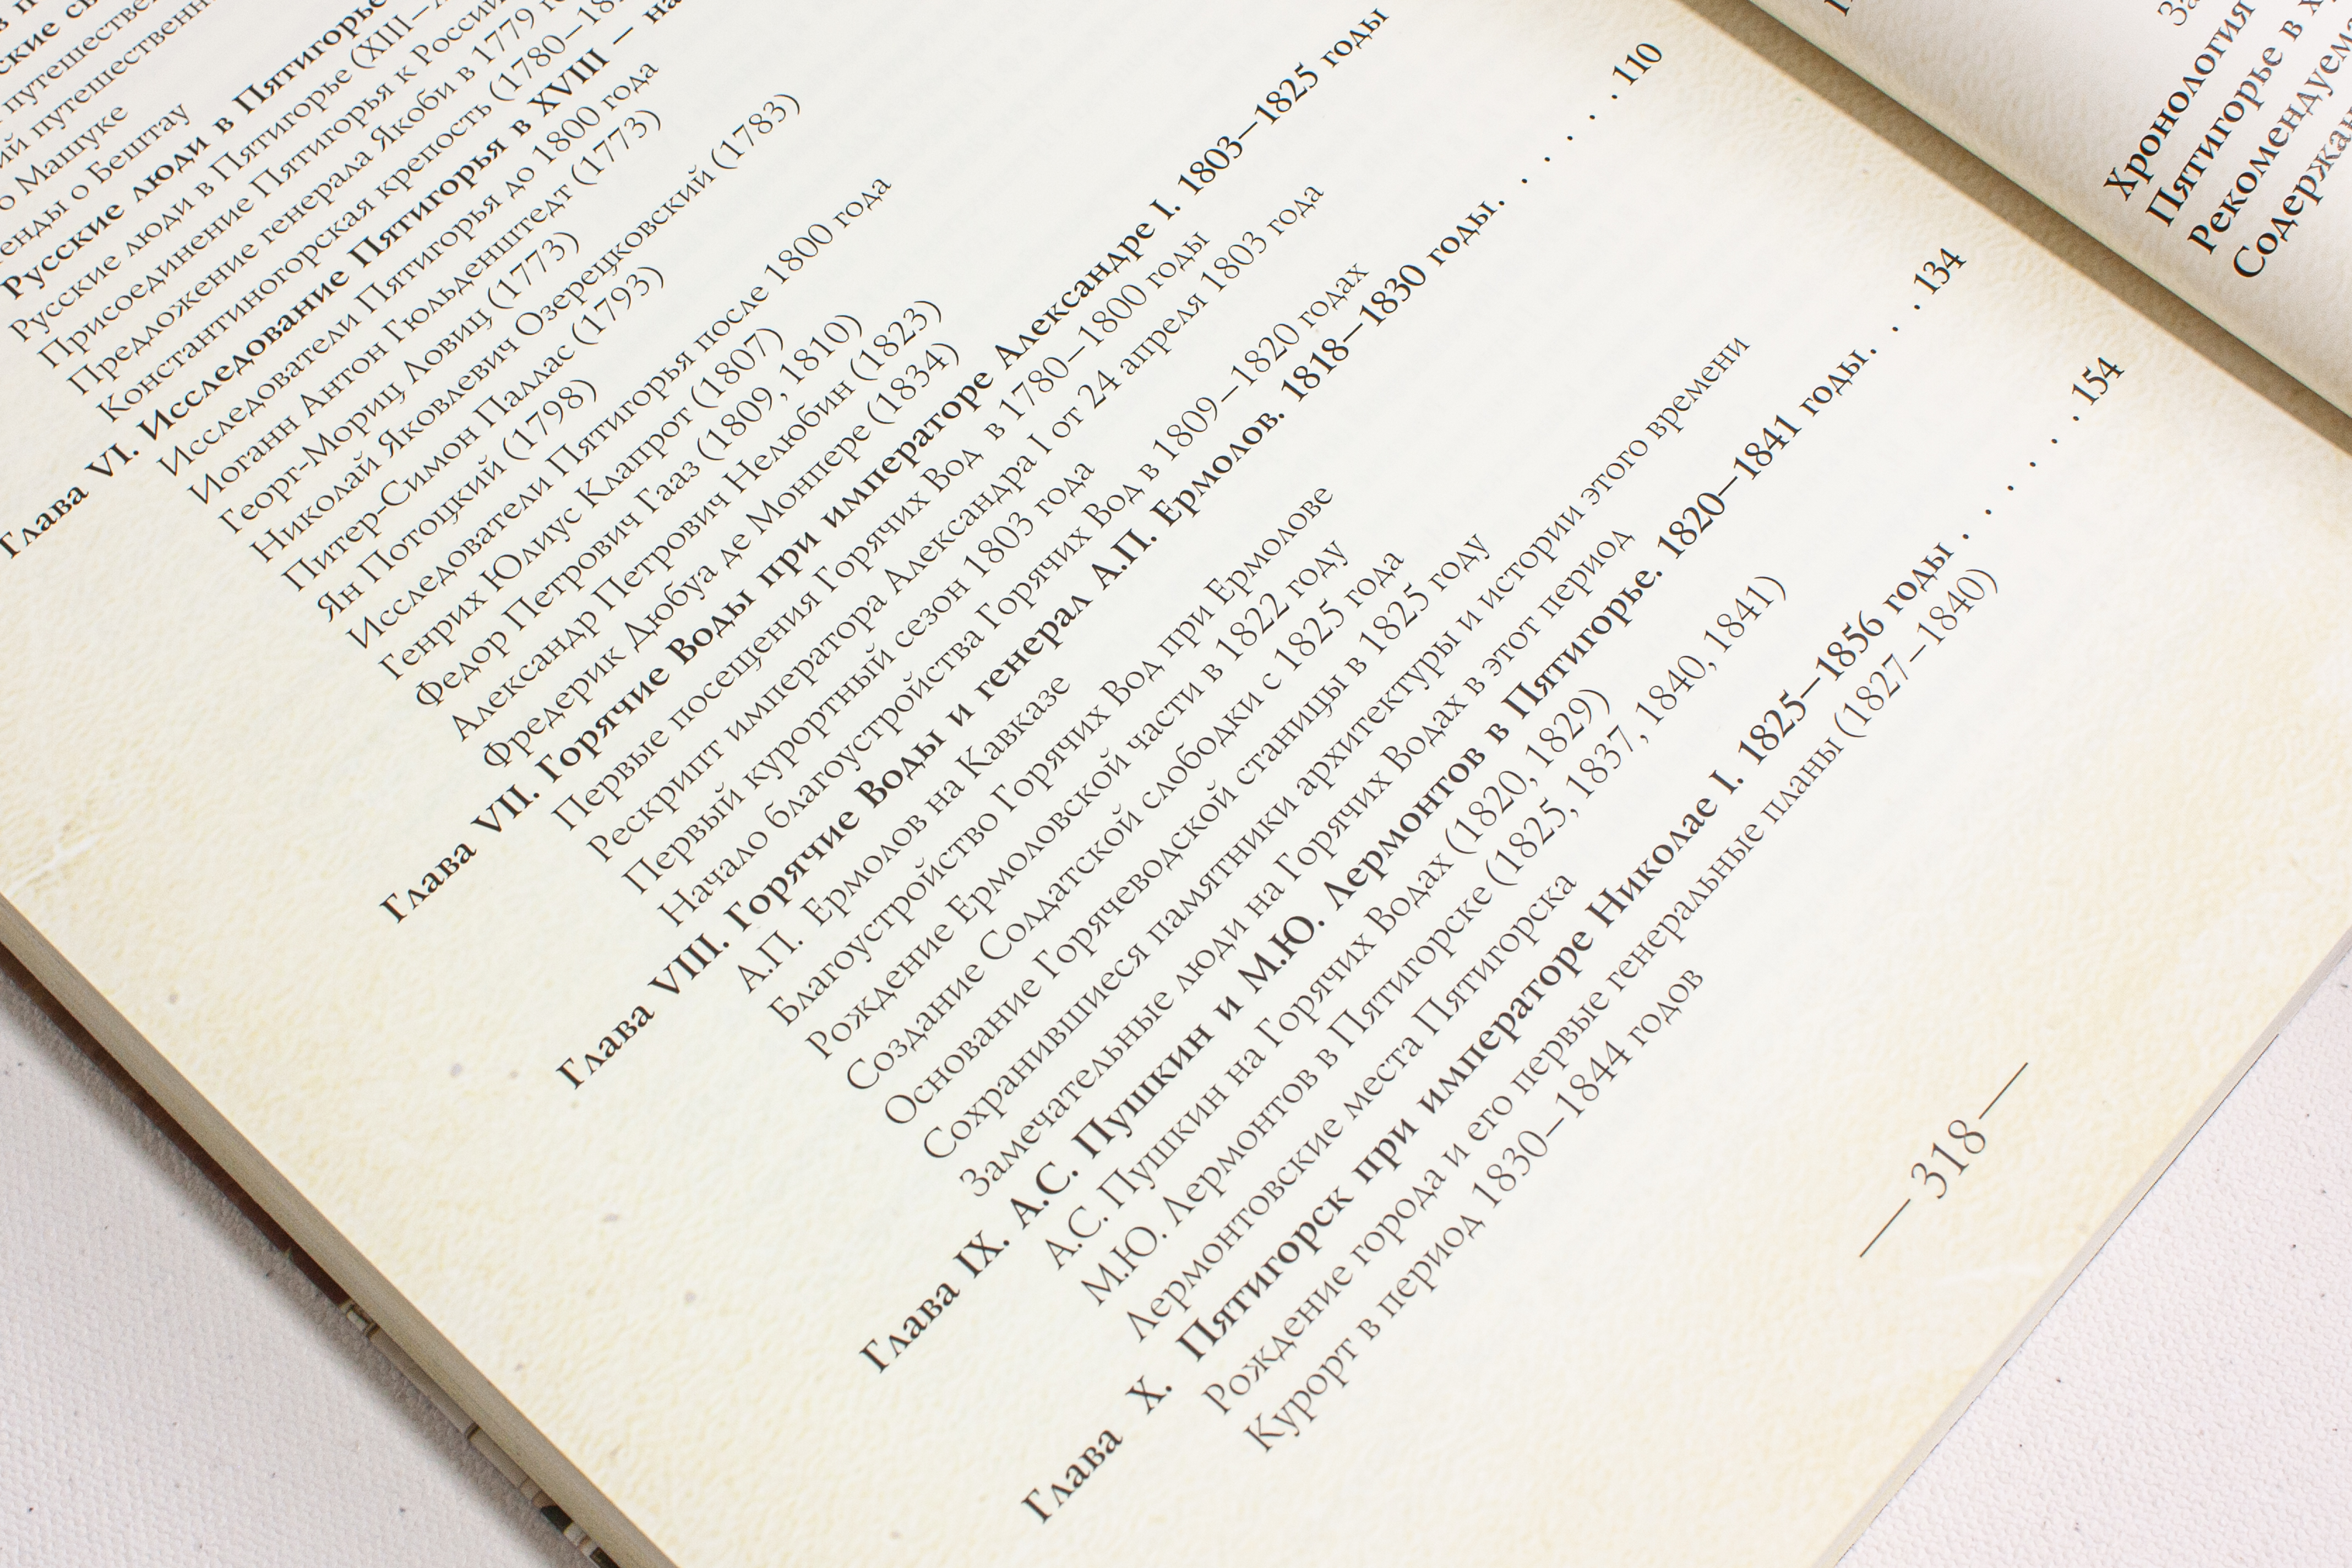 путешестве
ий путешественн
о Машуке
енды о Бештау
Русские люди в Пятигорье
Русские люди в Пятигорье (XIII–
Присоединение Пятигорья к России
Предложение генерала Якоби в 1779 го
Константиногорская крепость (1780–18
Глава VI. Исследование Пятигорья в XVIII – на
Исследователи Пятигорья до 1800 года
Иоганн Антон Гюльденштедт (1773)
Георг-Мориц Ловиц (1773)
Николай Яковлевич Озерецковский (1783)
Питер-Симон Паллас (1793)
Ян Потоцкий (1798)
Исследователи Пятигорья после 1800 года
Генрих Юлиус Клапрот (1807)
Федор Петрович Гааз (1809, 1810)
Александр Петрович Нелюбин (1823)
Фредерик Дюбуа де Монпере (1834)
Глава VII. Горячие Воды при императоре Александре I. 1803–1825 годы
Первые посещения Горячих Вод в 1780–1800 годы
Рескрипт императора Александра I от 24 апреля 1803 года
Первый курортный сезон 1803 года
Начало благоустройства Горячих Вод в 1809–1820 годах
Глава VIII. Горячие Воды и генерал А.П. Ермолов. 1818–1830 годы. . . . . . 110
А.П. Ермолов на Кавказе
Благоустройство Горячих Вод при Ермолове
Рождение Ермоловской части в 1822 году
Создание Солдатской слободки с 1825 года
Основание Горячеводской станицы в 1825 году
Сохранившиеся памятники архитектуры и истории этого времени
Замечательные люди на Горячих Водах в этот период
Глава IX. А.С. Пушкин и М.Ю. Лермонтов в Пятигорье. 1820–1841 годы. . . 134
А.С. Пушкин на Горячих Водах (1820, 1829)
М.Ю. Лермонтов в Пятигорске (1825, 1837, 1840, 1841)
Лермонтовские места Пятигорска
Глава X. Пятигорск при императоре Николае I. 1825–1856 годы . . . . . . . 154
Рождение города и его первые генеральные планы (1827–1840)
Курорт в период 1830–1844 годов
— 318 —
За
Хронология
Пятигорье в х
Рекомендуем
Содержан